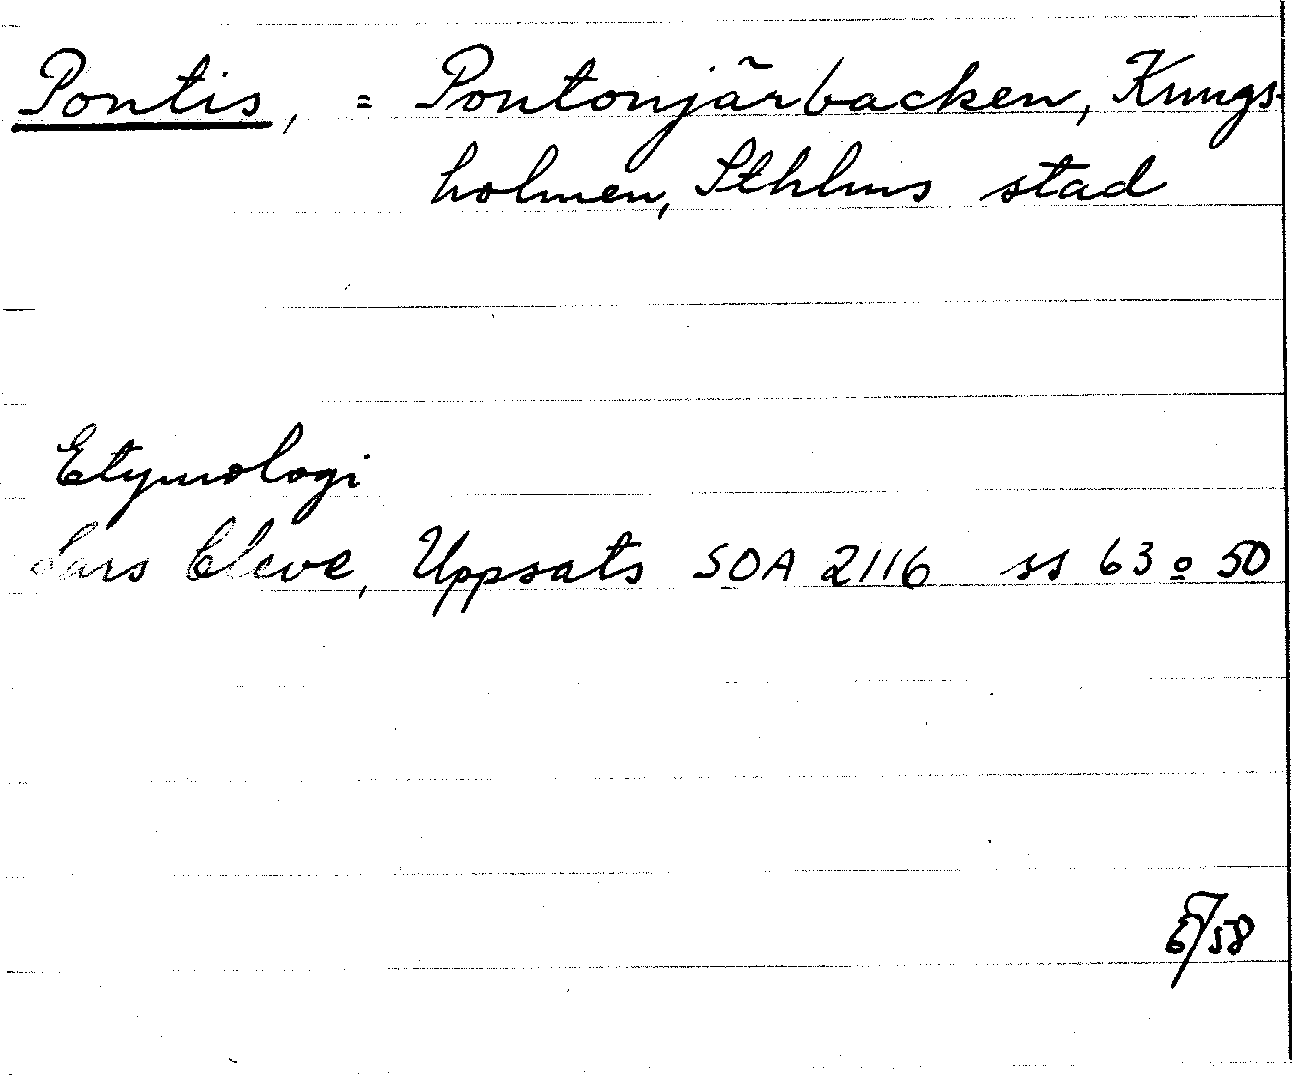 Pontis, = Pontonjärbacken, Kungs-
holmen, Sthlms stad
Etymologi
Lars Cleve, Uppsats SOA 2116 ss 63 o 50
/58